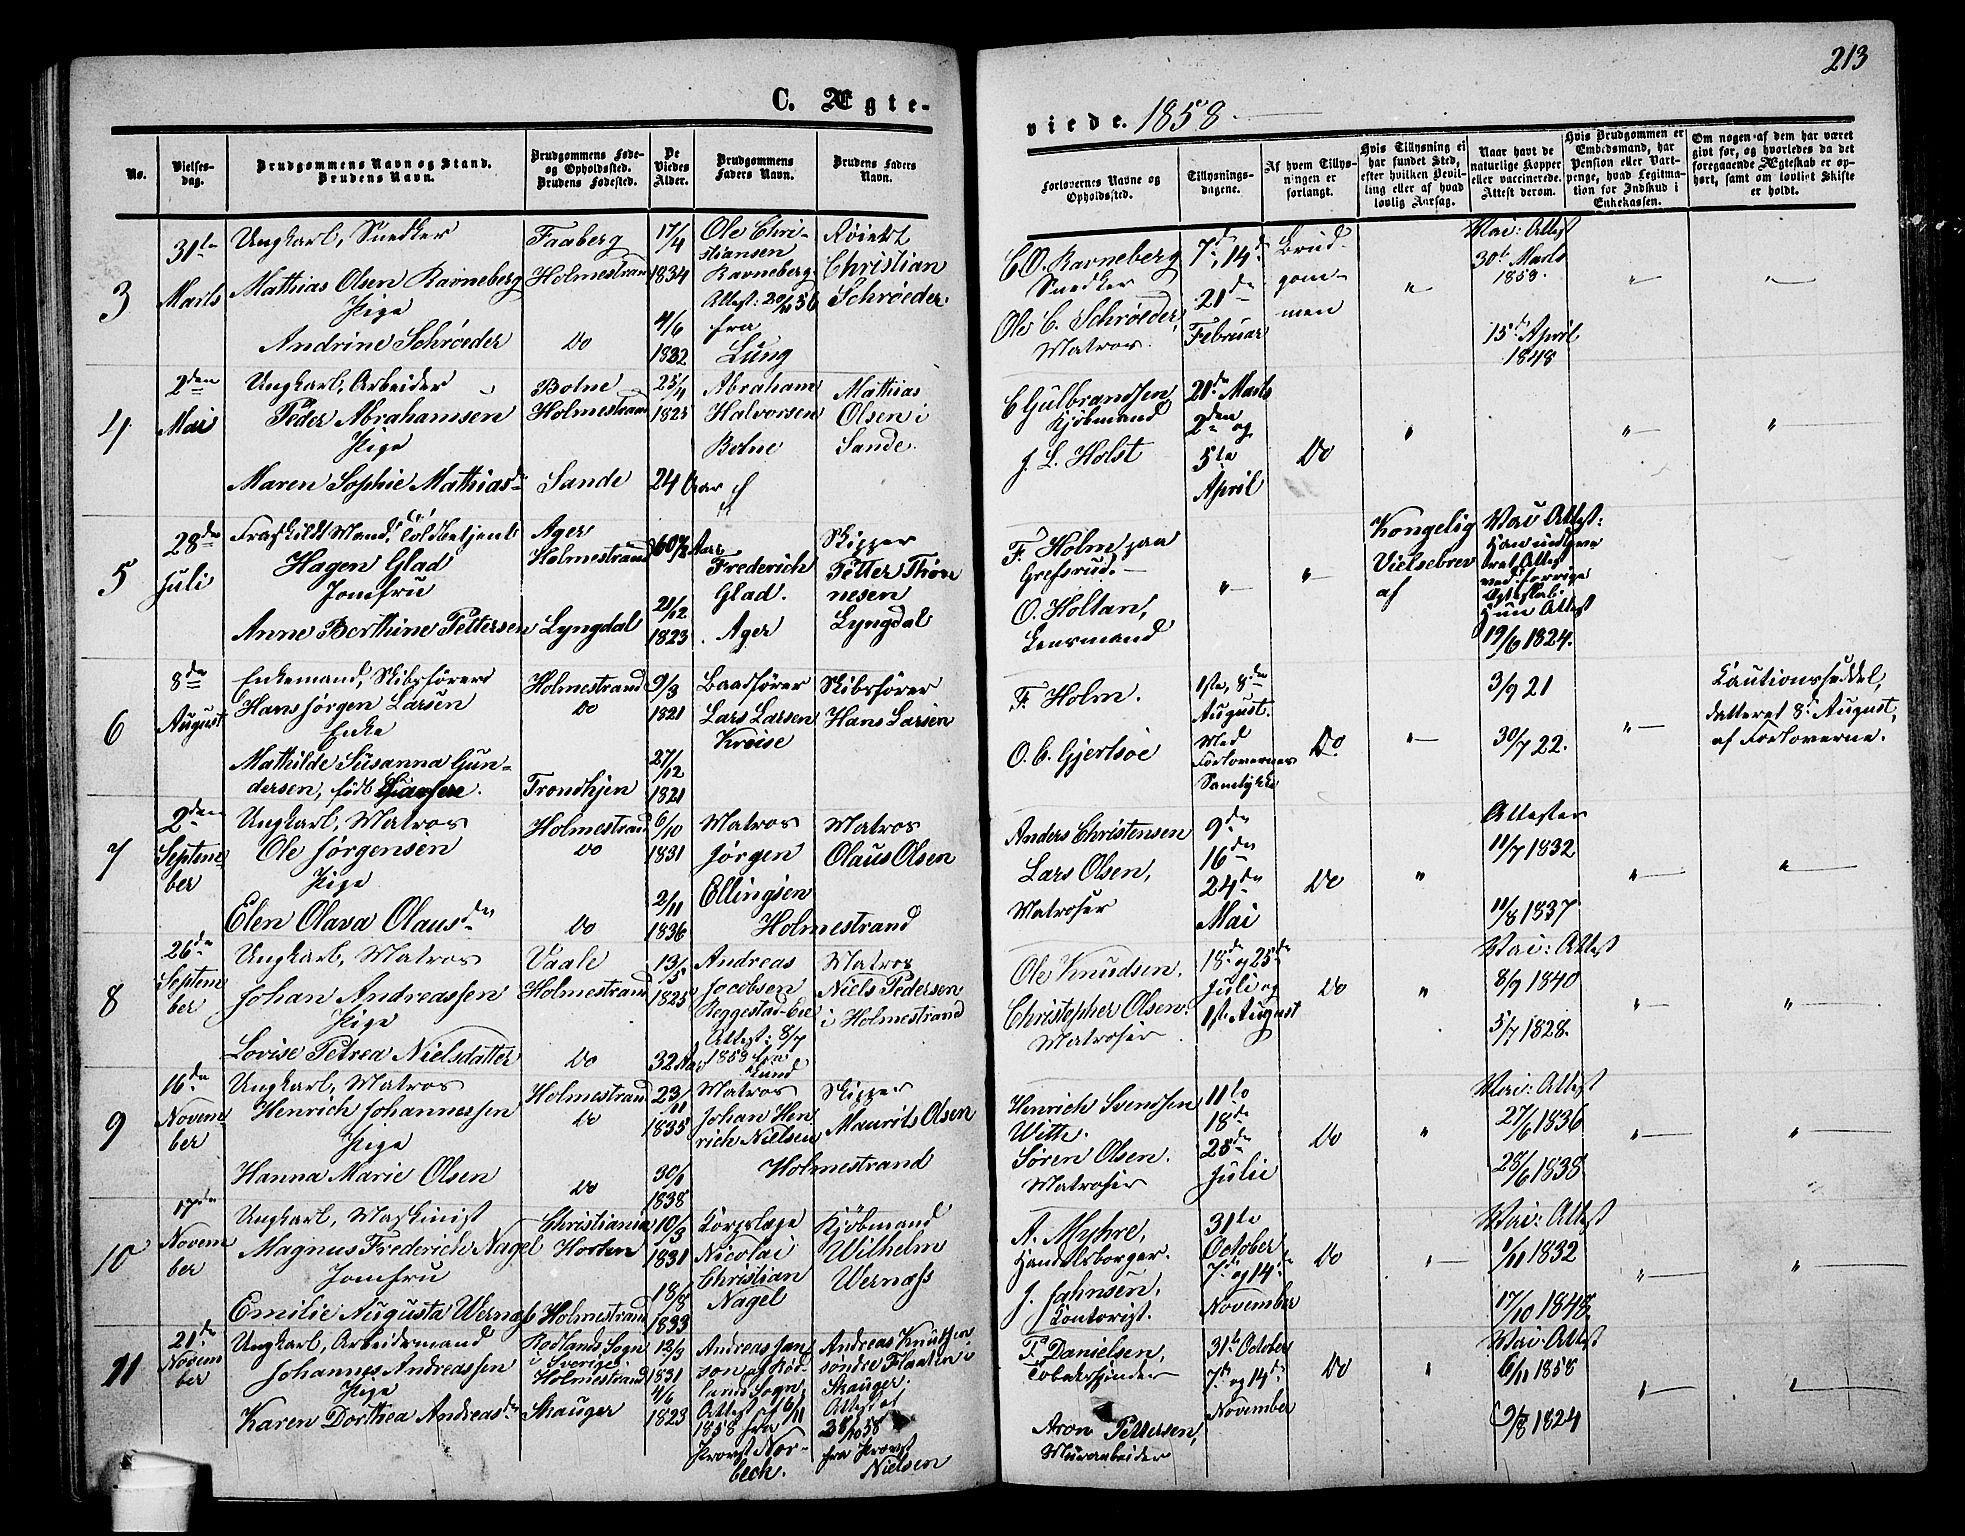 213
C. Ægte-
viede. 1858.
No.
Vielses-
dag.
Brudgommens Navn og Stand.
Brudens Navn.
Brudgommens Føde-
og Opholdssted.
Brudens Fødested.
De
Viedes
Alder.
Brudgommens
Faders Navn.
Brudens Faders
Navn.
Forlovernes Navne og
Opholdssted.
Tillysnings-
dagene.
Af hvem Tillys-
ningen er
forlangt.
Hvis Tillysning ei
har fundet Sted,
efter hvilken Bevil-
ling eller af hvad
lovlig Aarsag.
Naar havt de
naturlige Kopper
eller vaccinerede.
Attest derom.
Hvis Brudgommen er
Embedsmand, har
Pension eller Vart-
penge, hvad Legitima-
tion for Indskud i
Enkekassen.
Om nogen af dem har været
givt før, og hvorledes da det
foregaaende Ægteskab er op-
hørt, samt om lovligt Skifte
er holdt.
3
31te
Marts
Ungkarl, Snedker
Mathias Olsen Ravneberg
Pige
Andrine Schrøeder
Faaberg
Holmestrand
Do
17/4
1834
4/6
1832
Ole Chri-
stiansen
Ravneberg
Attest: 56
fra
Lung
Christian
Schrøeder.
C. O. Ravneberg
Snedker
Ole C. Schrøeder,
Matros.
7de, 14de
21de
Februar
Brud-
gom-
men
"
Vac: Attest
30te Marts
1858.
15de April
1848
"
"
4
2den
Mai
Ungkarl, Arbeider
Peder Abrahamsen
Pige
Maren Sophie Mathiasdr
Botne
Holmestrand
Sande
25/4
1825
24 Aar
Abraham
Halvorsen
Botne
Mathias
Olsen i
Sande.
C Gulbrandsen
Kjøbmand
J. L. Holst
21de Marts
2den og
5te
April
Do
"
"
"
5
28de
Juli
Fraskildt Mand, Toldbetjent
Hagen Glad
Jomfru
Anne Berthine Pettersen
Ager
Holmestrand
Lyngdal
21/12
1823
Frederich
Glad.
Ager
Skipper
Petter Thøn
nesen
Lyngdal
F. Holm paa
Grefsrud.
O. Holtan,
Lensmand
"
"
Kongelig
Vielsebrev
af
Vac Attest:
ved forrige
Ægteskab.
Hun Attest
19/6 1824.
6
8de
August
Enkemand, Skibsfører
Hans Jørgen Larsen
Enke
Mathilde Susanna Gun-
dersen, født
Holmestrand
Do
Trondhjen
9/3
1821
27/12
1821
Baadfører
Lars Larsen
Krøise
Skibsfører
Hans Larsen
F. Holm.
O. C. Gjertsøe
1ste, 8de
August.
Med
Forlovernes
Samtykke
Do
"
3/9 21
30/7 22.
"
Cautionsseddel,
datteret 8de August,
af Forloverne.
7
2den
Septem
ber
Ungkarl, Matros
Ole Jørgensen
Pige
Elen Olava Olausdr
Holmestrand
Do
Do
6/10
1831
2/11
1836
Matros
Jørgen
Ellingsen
Holmestrand
Matros
Olaus Olsen
Anders Christensen
Lars Olsen,
Matroser
9de
16de
24de
Mai
Do
"
Attester
11/7 1832
11/8 1837
"
"
8
26de
Septem
ber
Ungkarl, Matros
Johan Andreassen
Pige
Lovise Petrea Nielsdatter
Vaale
Holmestrand
Do
13/5
1825
32 Aar
Andreas
Jacobsen
Reggestad-Eie
Attest: 8/7
1858 fra
Lund
Matros
Niels Pedersen
i Holmestrand
Ole Knudsen.
Christopher Olsen.
Matroser
18de og 25de
Juli og
1ste August
Do
"
Vac: Attest
8/9 1840
5/7 1828.
"
"
9
16de
Novem
ber
Ungkarl, Matros
Henrich Johannessen
Pige
Hanna Marie Olsen
Holmestrand
Do
Do
23/11
1835
30/1
1838
Matros
Johan Hen
rich Nielsen
Holmestrand
Skipper
Maurits Olsen
Henrich Svendsen
Witte.
Søren Olsen.
Matroser
11te
18de
25de
Julie
Do
"
Vac: Attest
27/6 1836
28/6 1838
"
"
10
17de
Novem
ber
Ungkarl, Maskinist
Magnus Frederich Nagel
Jomfru
Emilie Augusta Wernass
Christiania
Horten
Holmestrand
10/3
1831
18/8
1833
Corpslæge
Nicolai
Christian
Nagel
Kjøbmand
Wilhelm
Wernass
A. Myhre,
Handelsborger.
J. Jahnsen,
Contorist.
31te
October
7de og 14de
November
Do
"
Vac: Attest
1/11 1832
17/10 1848.
"
"
11
21de
Novem
ber
Ungkarl, Arbeidsmand
Johannes Andreassen
Pige
Karen Dorthea Andreasdr
Rødlands Sogn
i Sverige
Holmestrand
Skauger
12/9
1831
4/6
1823
Andreas Jan
son af Rød-
lands Sogn,
Attest af 6/11
1858 fra
Provst Nor-
beck.
Andreas Knuthen
søndre Flaaten i
Skauger.
Attest af
28/10 58
fra Provst
Nielsen
F. Danielsen,
Tobakspinder
Aron Pettersen,
Murarbeider
31te October
7de og 14de
November
Do
"
Vac: Attest
6/11 1858
9/8 1824
"
"